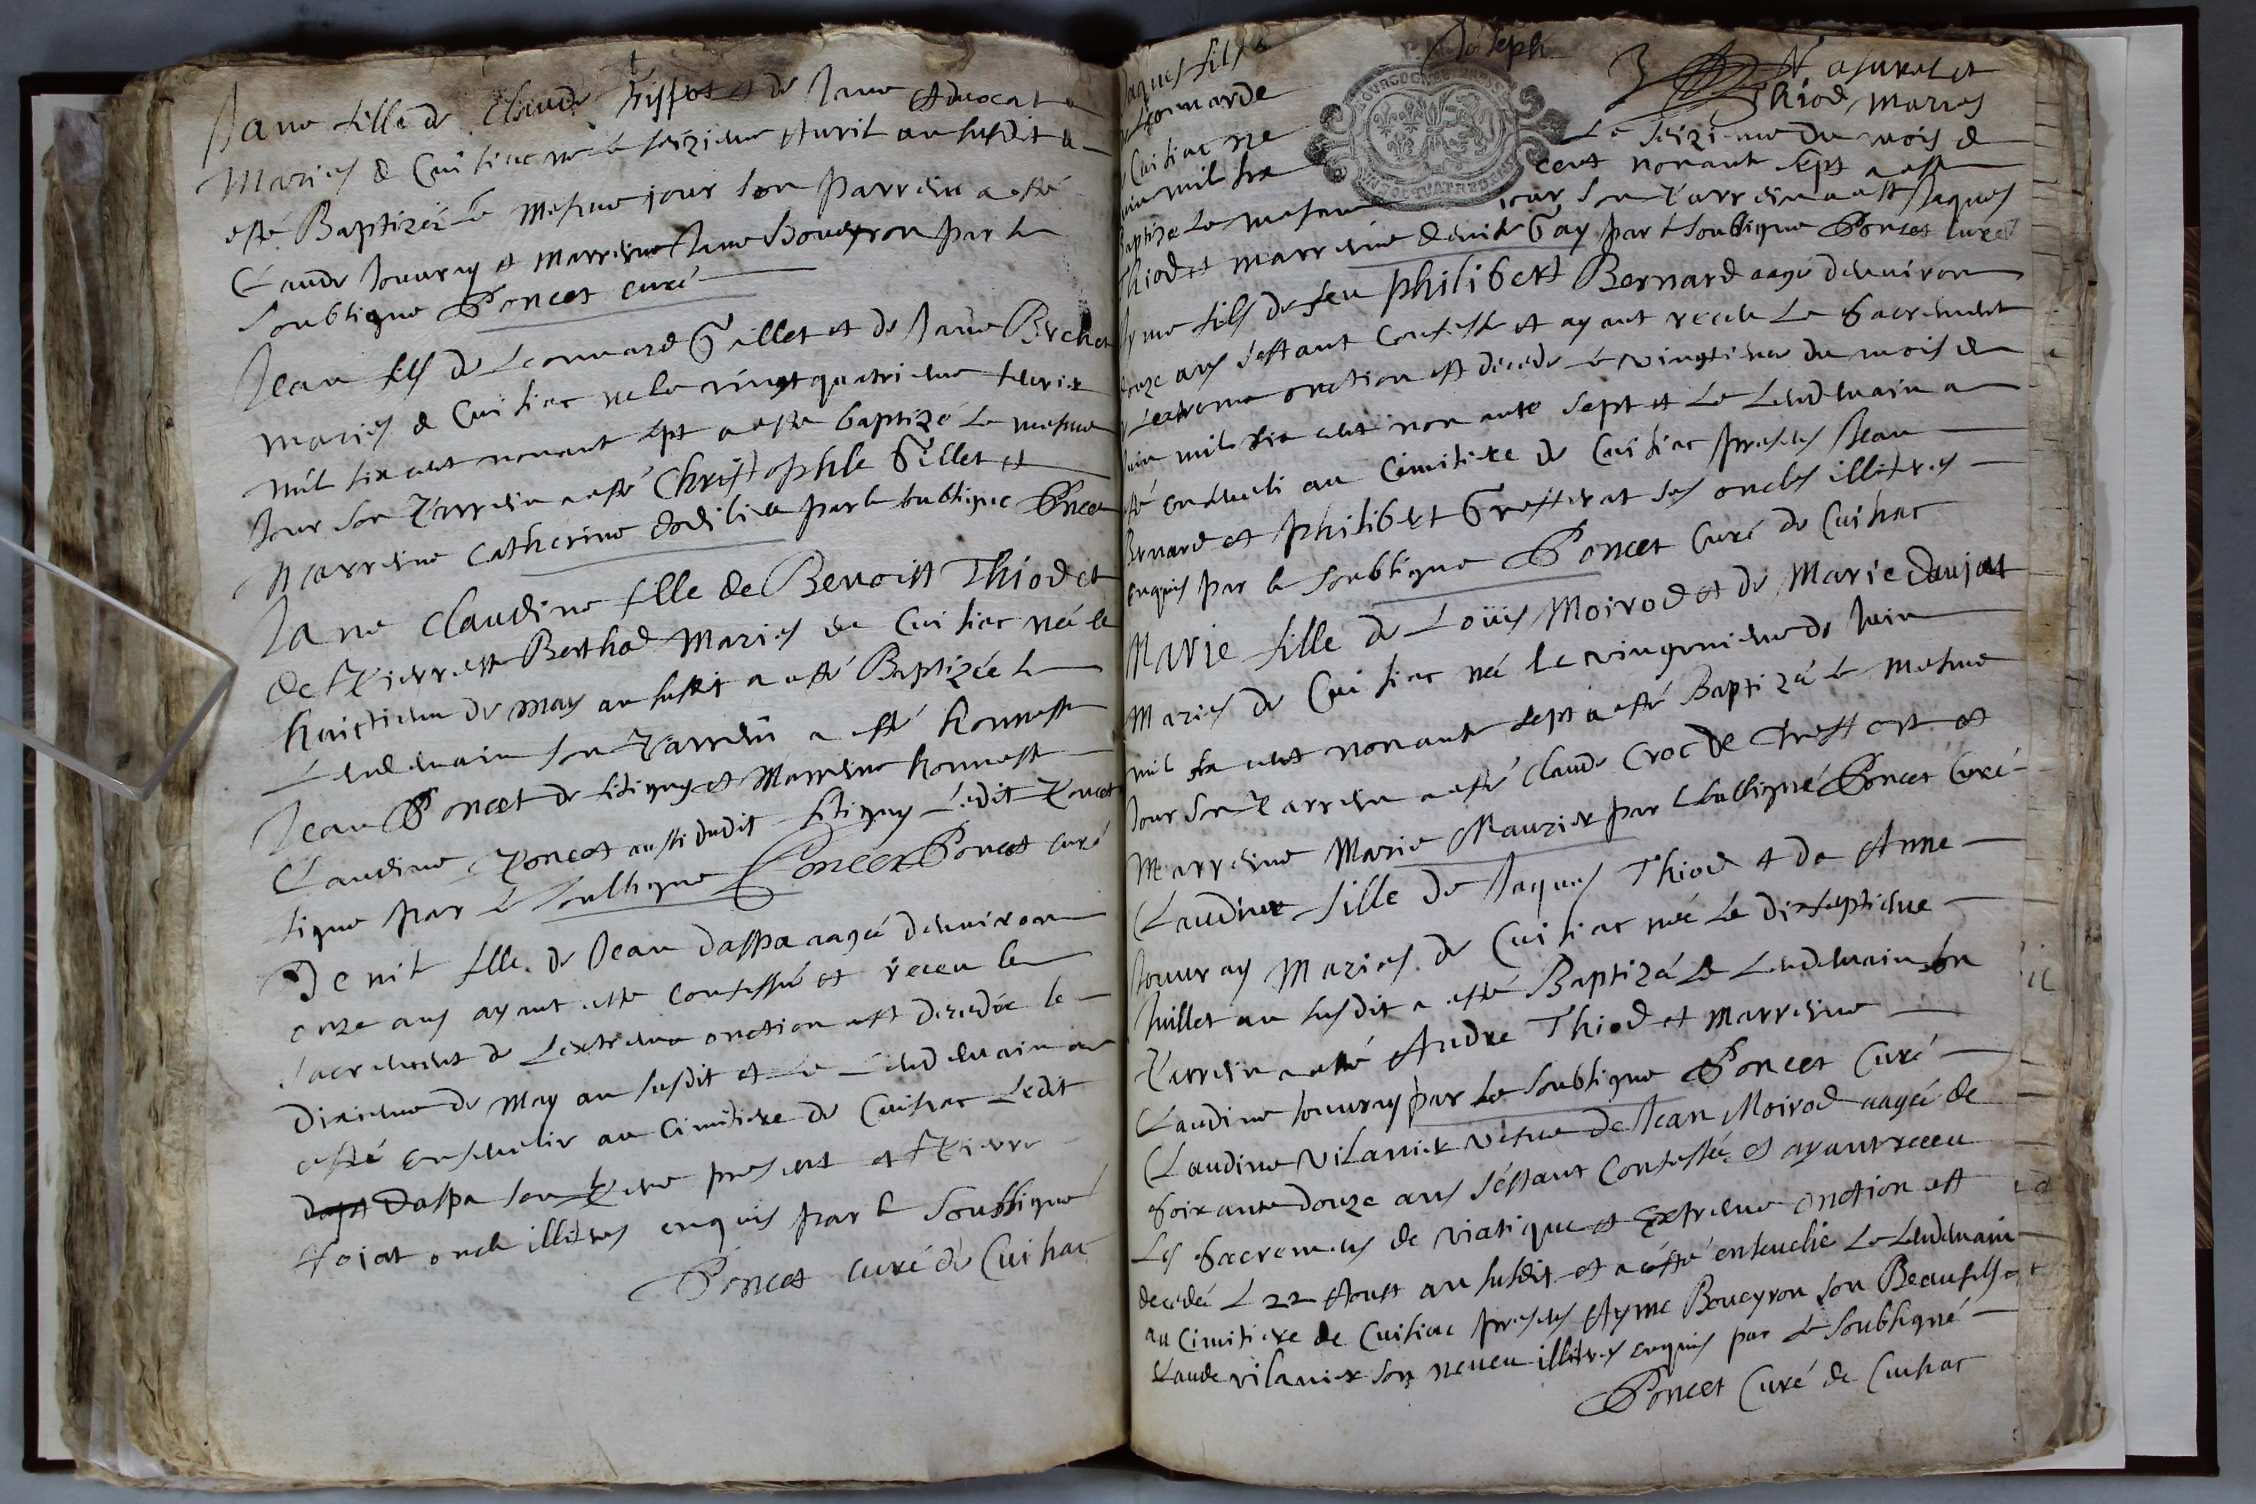 Jane fille de Claude et de Jane Advocat
Maries de Cuisiac née le seizieme Avril an susdit a
esté Baptizée le mesme jour son parrein a esté
Claude Jouvray et marreine Jane Boveyron par le
soubsigne Poncet curé
Jean fils de Leonnard Gillet et de Jane Brchet
maries de Cuisiac ne le vingt quatrieme fevrier
mil six cent nonant sept a este baptizé le mesme
Jour son Parrein a esté Christophle Gillet et
Marreine Catherine par le soubsigne Poncet
Jane Claudine fille de Benoist Thiod et
de Pierrette Berthod Maries de Cuisiac née le
huictieme de may an susdit a esté Baptizée le
Lendemain son Parrein a esté honneste
Jean Poncet de Litigny et Marreine honneste
Claudine Poncet aussi dudit Litigny Ledit Poncet
signe par le soubsigne Poncet Poncet curé
Denise fille de Jean Daspa aagée denviron
onze ans ayant esté confessée et receu le
sacrement de Lextreme onction est decedée le
dixieme de may an susdit et le Lendemain a
esté ensevelir au Cimitiere de Cuisiac Ledit
Daspa son Pere present et Pierre
oncle illitres enquis par le Soubsigné
Poncet curé de Cuisiac
Joseph
Jaques fils a
Leonarde
Thiod Maries
de Cuisiac ne Le seizieme du mois de
juin mil six cent nonant sept a esté
Baptize Le mesme jour son Parrein a esté Jaques
Thiod et marreine Denise Gay par le soubsigne Poncet Curé
Ayme fils de feu Philibert Bernard aagé denviron
onze ans sestant Confessé et ayant receu Le Sacrement
Lextreme onction est décedé le vingtieme du mois de
juin mil six cent nonante sept et Le Lendemain a
esté enseveli au Cimitiere de Cuisiac presens Jean
Bernard et Philibert ses oncles illitres
enquis par le soubsigne Poncet Curé de Cuisiac
Marie fille de Loüis Moirod et de Marie Daujat
Maries de Cuisiac née le de Juin
mil six cent nonant sept a esté Baptizée le mesme
Jour son Parrein a esté Claude Croc de Treffort et
Marreine Marie Maurier par le soubsigné Poncet Curé
Claudine fille de Jaques Thiod et de Anne
Jouvray Maries de Cuisiac née Le dixseptieme
Juillet an susdit a esté Baptizée Le Lendemain son
Parrein a esté Andre Thiod et Marreine
Claudine Jouvray par Le soubsigne Poncet Curé
Claudine Vilanier vefve de Jean Moirod aagée de
soixante douze ans s'estant Confessée et ayant receu
Les Sacremens de viatique et Extreme Onction est
decedée L 22 Aoust an susdit et a esté ensevelie Le Lendemain
au Cimitiere de Cuisiac presens Ayme Boveyron son Beaufils et
Claude vilanier son neveu illitres enquis par Le Soubsigné
Poncet Curé de Cuisiac